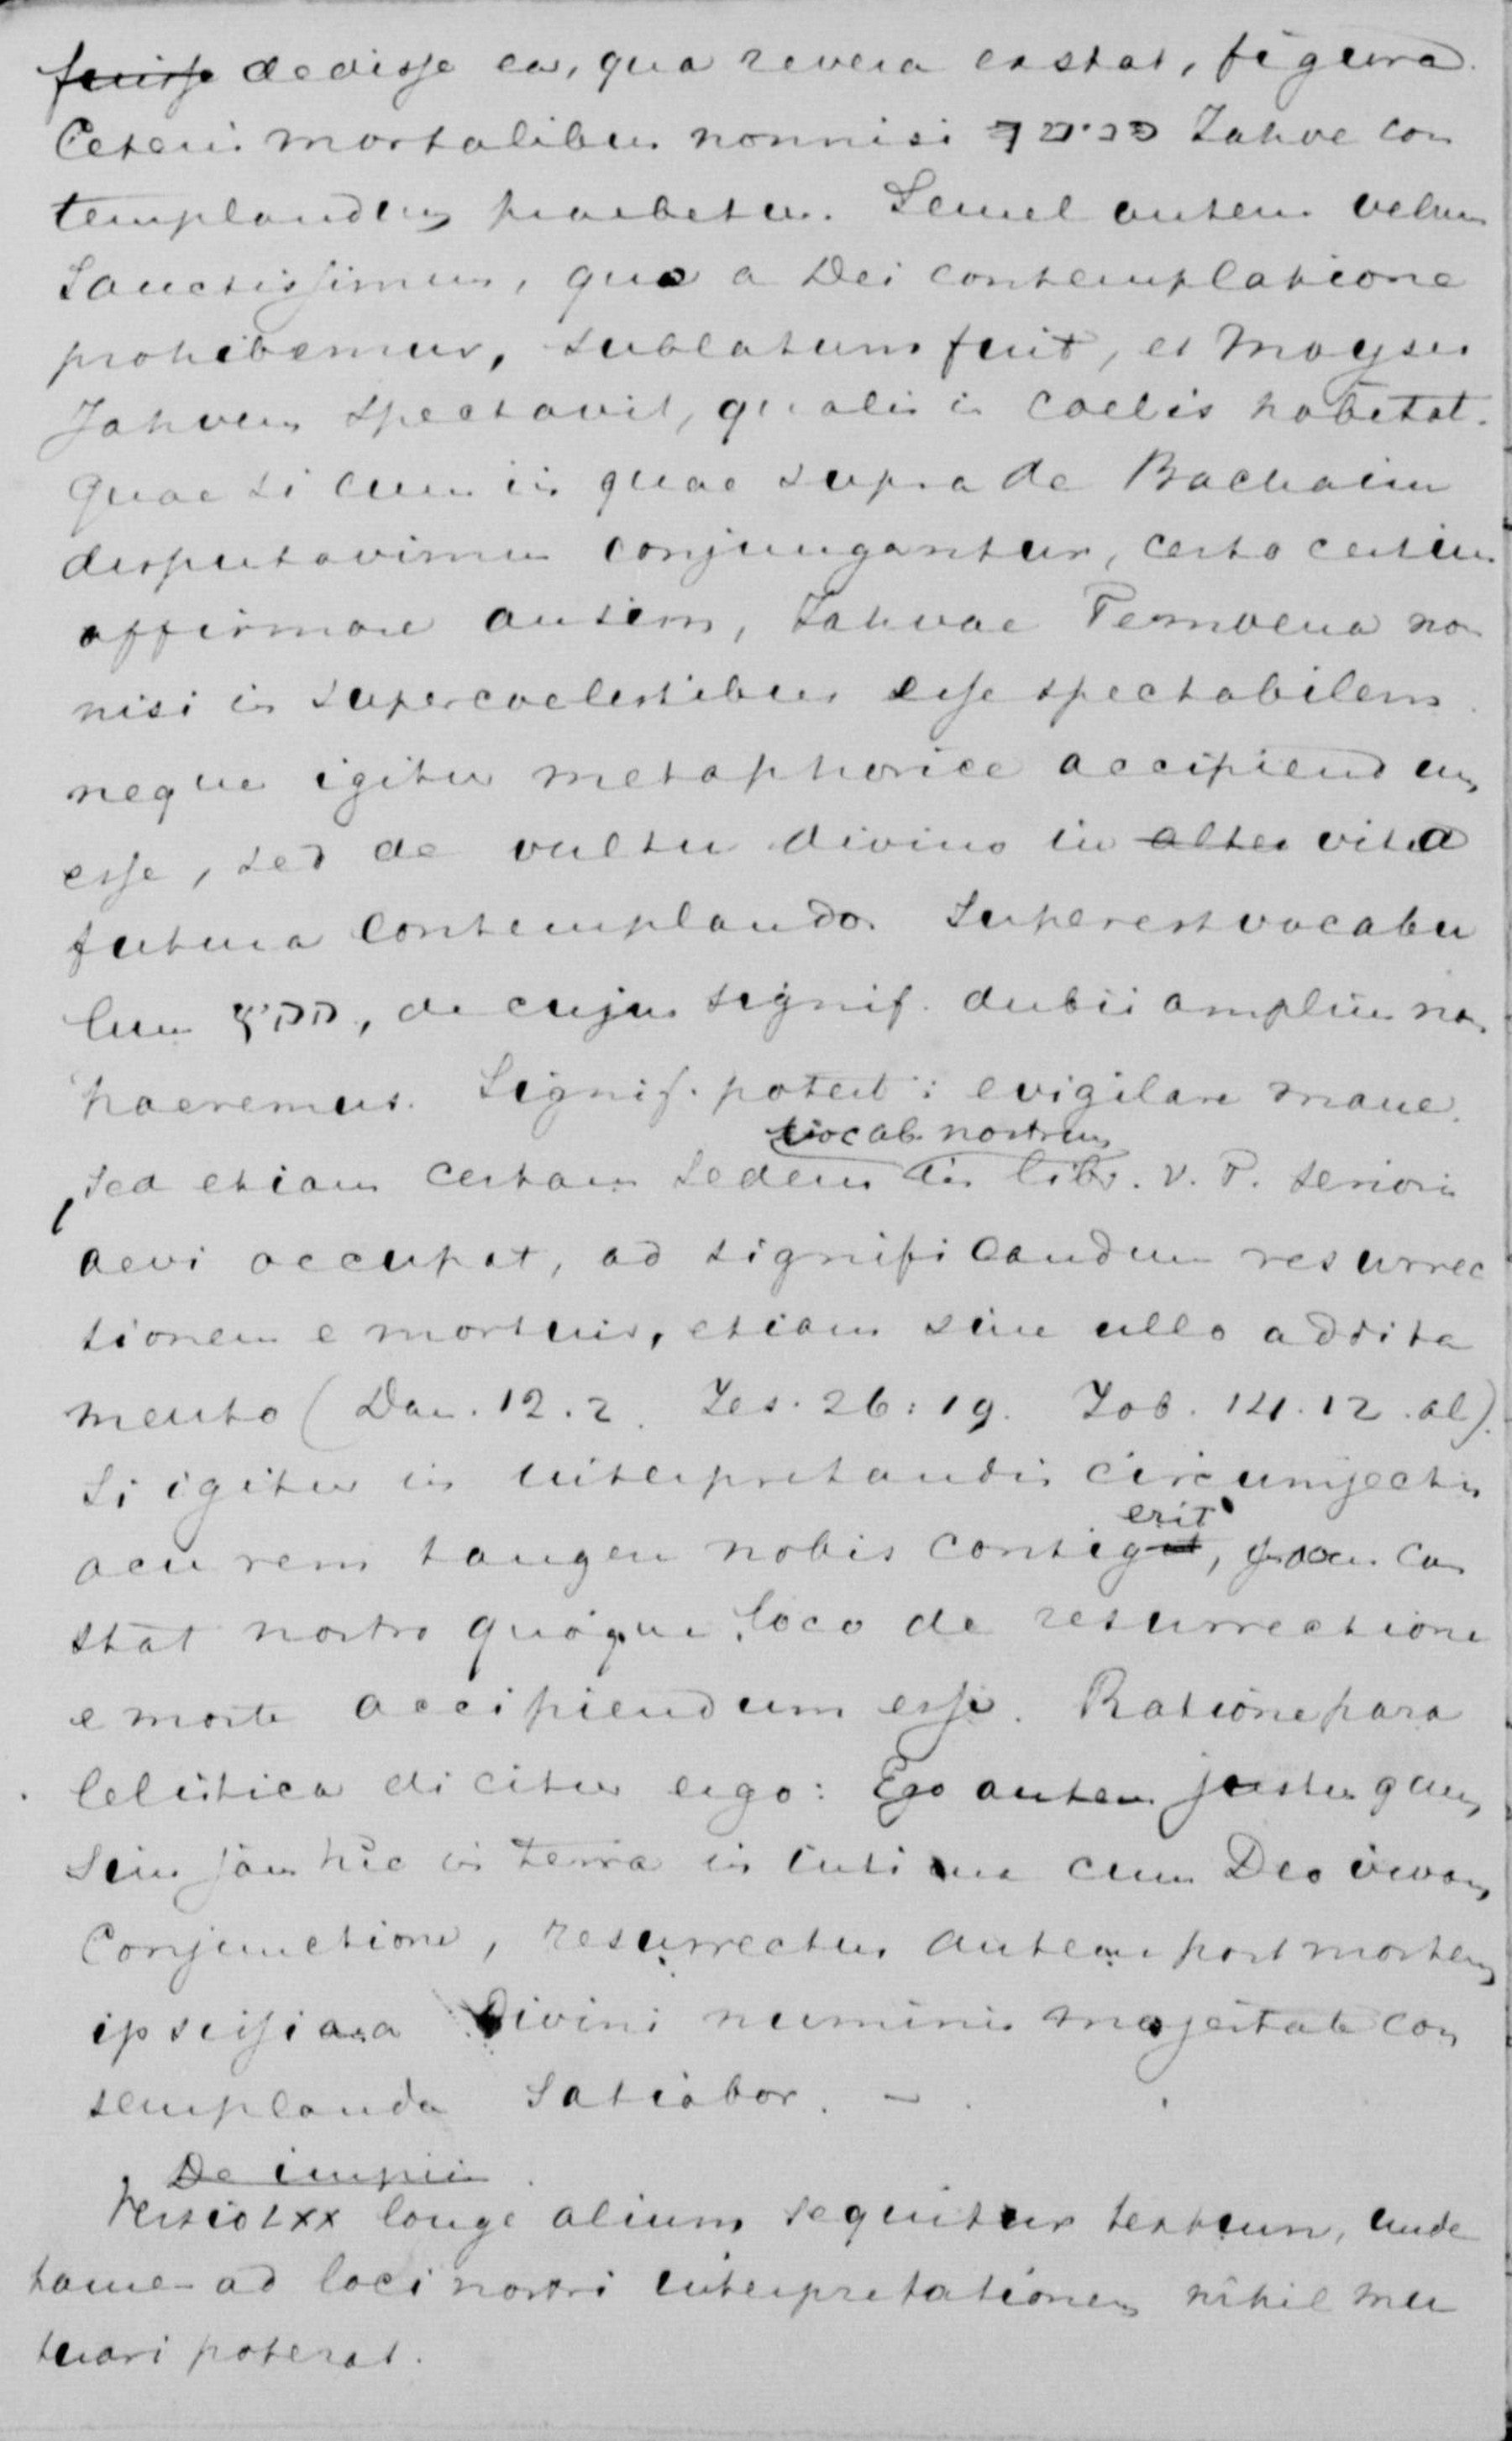 ~~fuisse~~ dedisse ea, qua revera exstat, figura.
Ceteris mortalibus nonnisi Jahve con
templandus praebetur. Semel autem velum
Sanctissimum, quo a Dei contemplatione
prohibemur, sublatum fuit, et Moyses
Jahvem spectavit, qualis in coelis habitat.
Quae si cum iis quae supra de Bachaim
disputavimus conjungantur, certo certius
affirmare ausim, Jahvae Temuena non
nisi in supercoelestibus esse spectabilem
neque igitur metaphorice accipiendum
esse, sed de vultu divino in ~~altera~~ vita
futura contemplando. Superest vocabu
lum הקיץ, de cujus signif. dubii amplius non
haeremus. Signif. potest: evigilare mane.
vocab. nostrum
sed etiam certam sedem in libr. V. T. serioris
aevi occupat, ad significandum resurrec
tionem e mortuis, etiam sine ullo addita
mento (Dan. 12.2. Jes. 26:19. Job. 14.12. al).
Si igitur in interpretandis circumjectis
erit
acu rem tangere nobis contig~~it~~, con
stat nostro quoque loco de resurrectione
e morte accipiendum esse. Ratione para
lelistica dicitur ergo: Ego autem justus quum
sim jam hic in terra in intima cum Deo vivam
Conjunctione, resurrectus autem post mortem
ipsissima Divini numinis majestate con
templanda satiabor. —
De impiis
Versio LXX longe alium sequitur textum, unde
tamen ad loci nostri interpretationem nihil mu
tuari poterat.